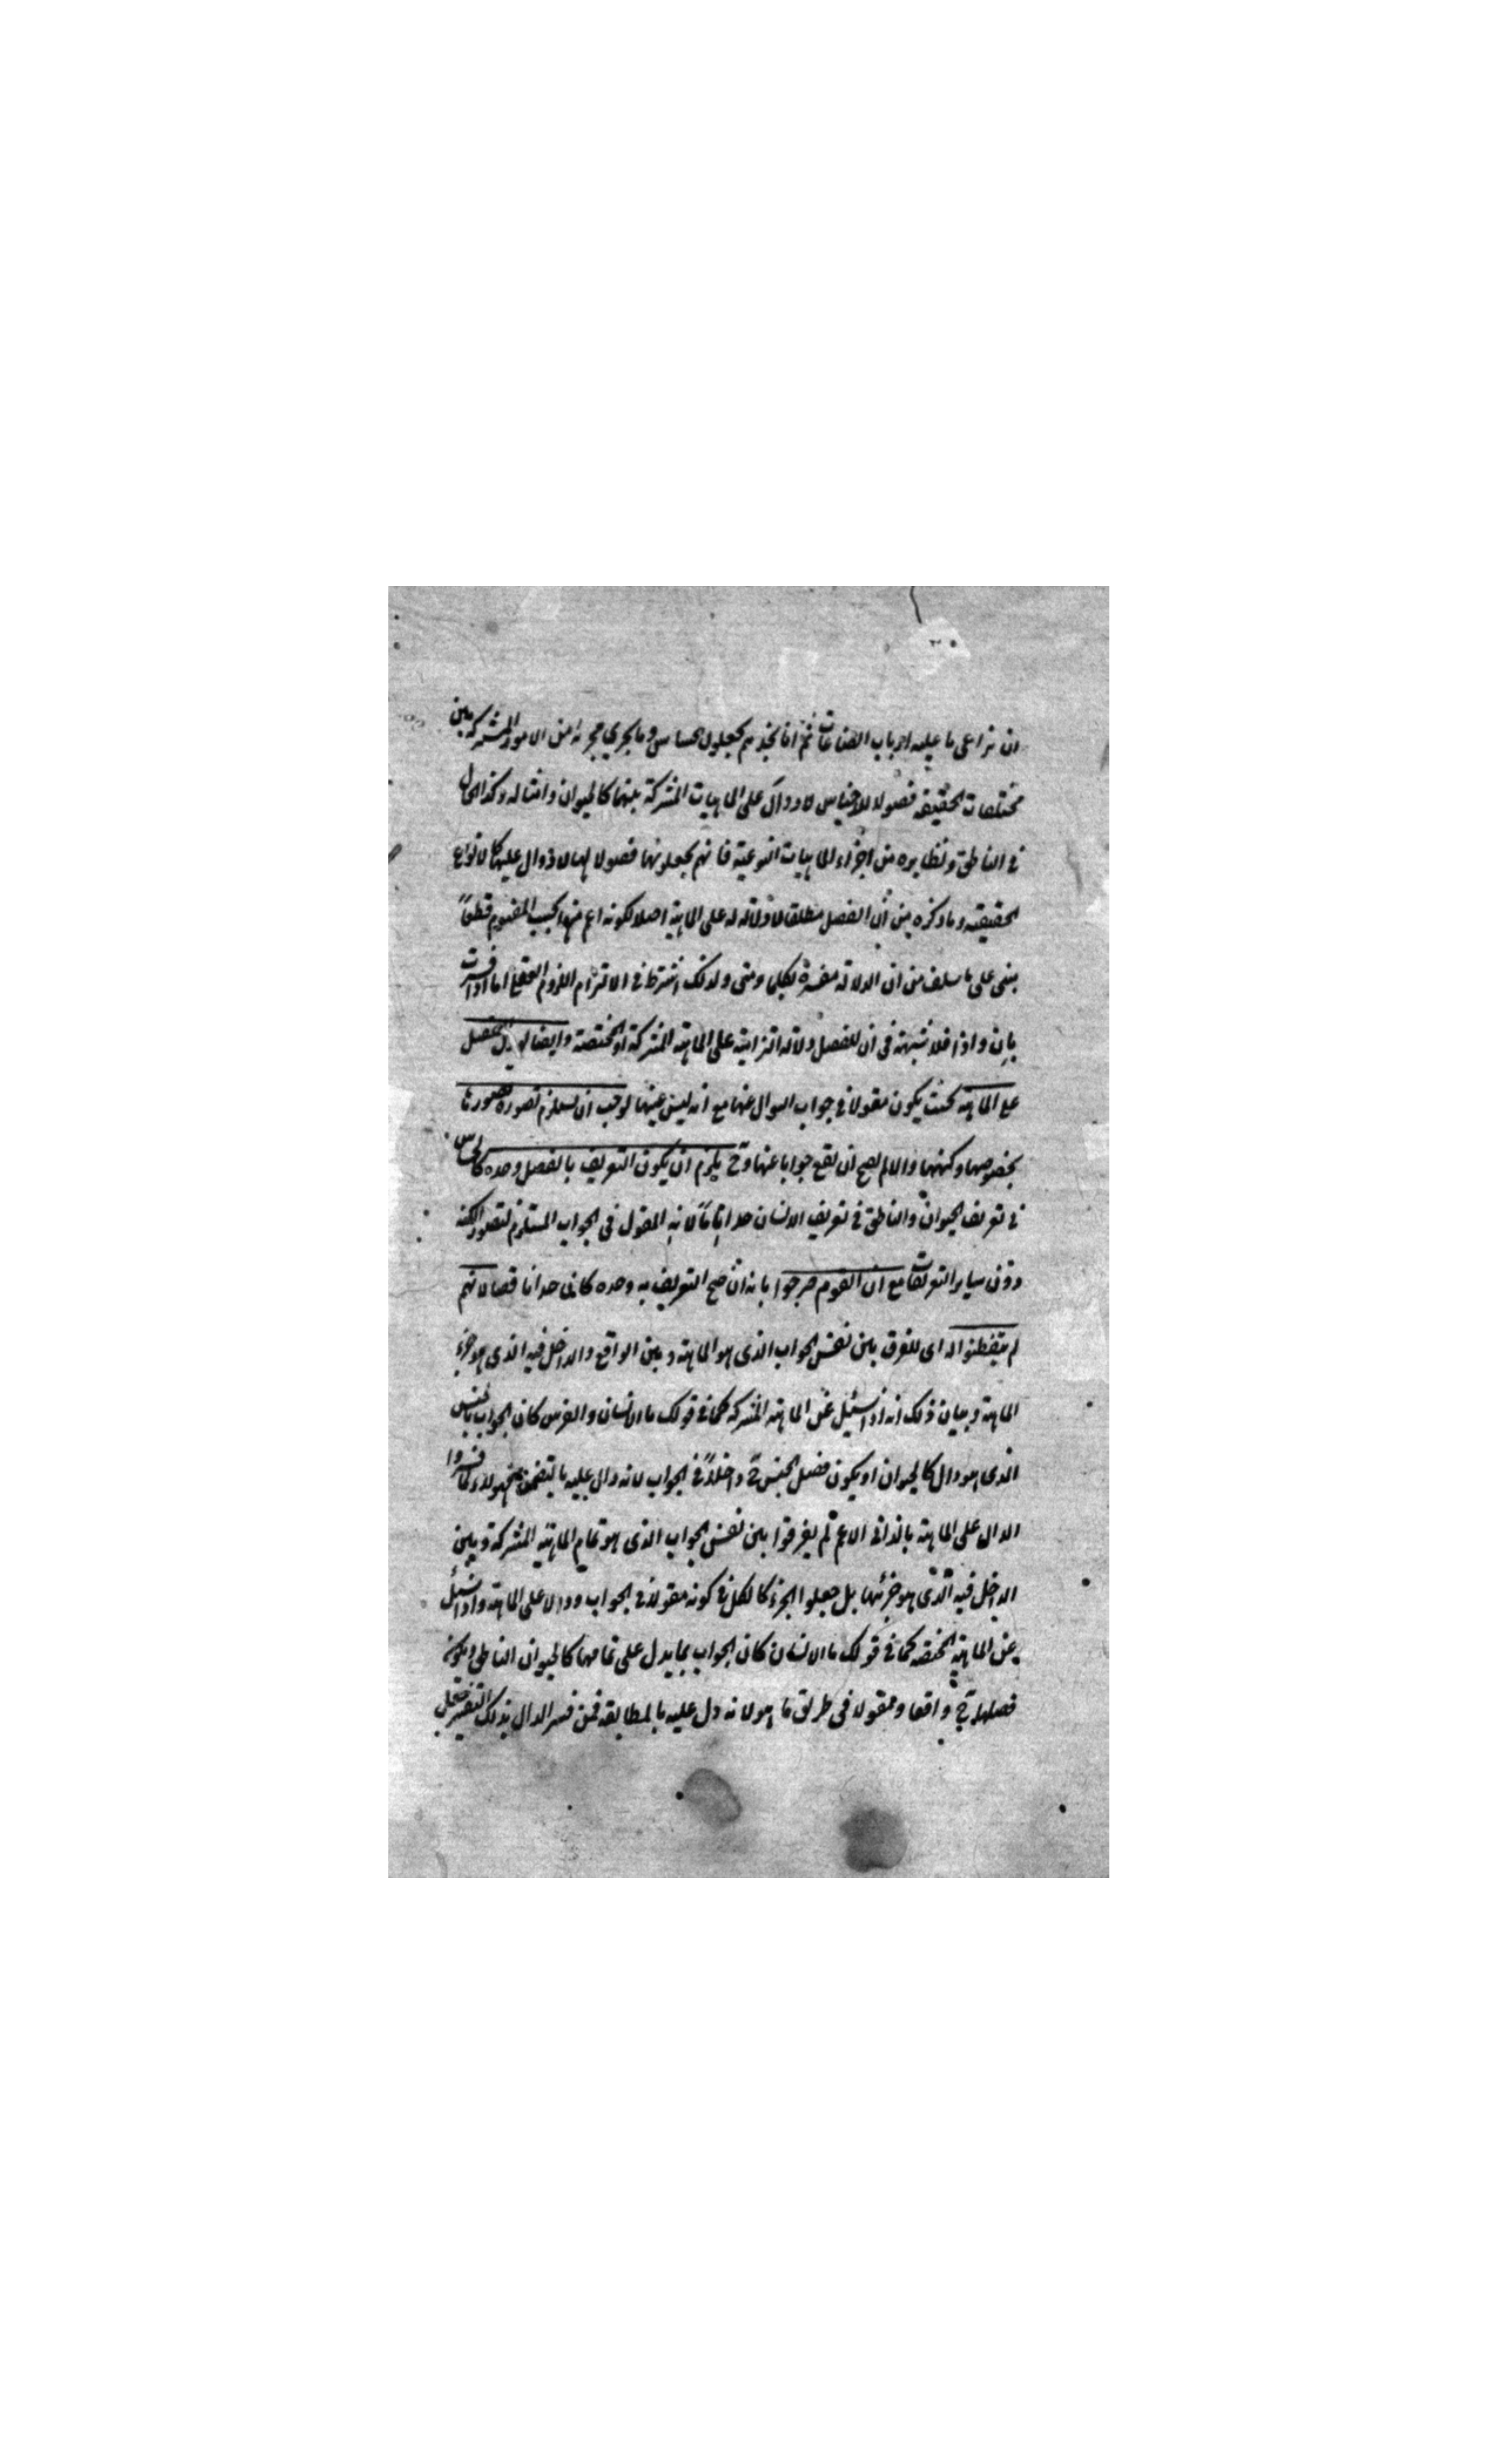 ان نزاعى ما عليه ارباب الصناعات ثم انا نجدهم يجعلون الحساس وما يجرى مجراه من الامور المشتركة بين
مختلفات الحقيقة فصولا للاجناس لا دوال على الماهيات المشتركة بينها كالحيوان وامثاله وكذا الحال
فى الناطق ونظايره من اجزاء الماهيات النوعية فانهم يجعلونها فصولا لها لا دوال عليها كالانواع
الحقيقية وما ذكره من ان الفصل مطلقا لا دلالة له على الماهية اصلا لكونه اعم منها بحسب المفهوم قطعا
مبنى على ما سلف من ان الدلالة مفسرة بكلما ومتى ولذلك اشترط فى الالتزام اللزوم العقلى اما اذا فسرت
بان واذا فلا شبهة فى ان للفصل دلالة التزامية على الماهية المشتركة او المختصة وايضا الفصل
على الماهية بحيث يكون مقولا فى جواب السوال عنها مع انه ليس عينها لوجب ان يستلزم تصوره تصورها
بخصوصها وكنهها والا لم يصح ان يقع جوابا عنها وح يلزم ان يكون التعريف بالفصل وحده كالحساس
فى تعريف الحيوان والناطق فى تعريف الانسان حدا تاما لانه المقول فى الجواب المستلزم لتصور الكنه
دون ساير التعريفات مع ان القوم صرحوا بانه ان صح التعريف به وحده كان حدا ناقصا لانهم
لم يتفطنوا له اى للفرق بين نفس الجواب الذى هو الماهية وبين الواقع والداخل فيه الذى هو جزء
الماهية وبيان ذلك انه اذا سئل عن الماهية المشتركة كما فى قولك ما الانسان والفرس كان الجواب بالجنس
الذى هو دال كالحيوان او يكون فصل الجنس ح داخلا فى الجواب لانه دال عليه بالتضمن فهولاء لما فسروا
الدال على الماهية بالذاتى الاعم لم يفرقوا بين نفس الجواب الذى هو تمام الماهية المشتركة وبين
الداخل فيه الذى هو جزئها بل جعلوا الجزء كالكل فى كونه مقولا فى الجواب ودالا على الماهية واذا سئل
عن الماهية المختصة كما فى قولك ما الانسان كان الجواب بما يدل على تمامها كالحيوان الناطق ويكون
فصلها ح واقعا ومقولا فى طريق ما هو لانه دل عليه بالمطابقة فمن فسر الدال بذلك التفسير